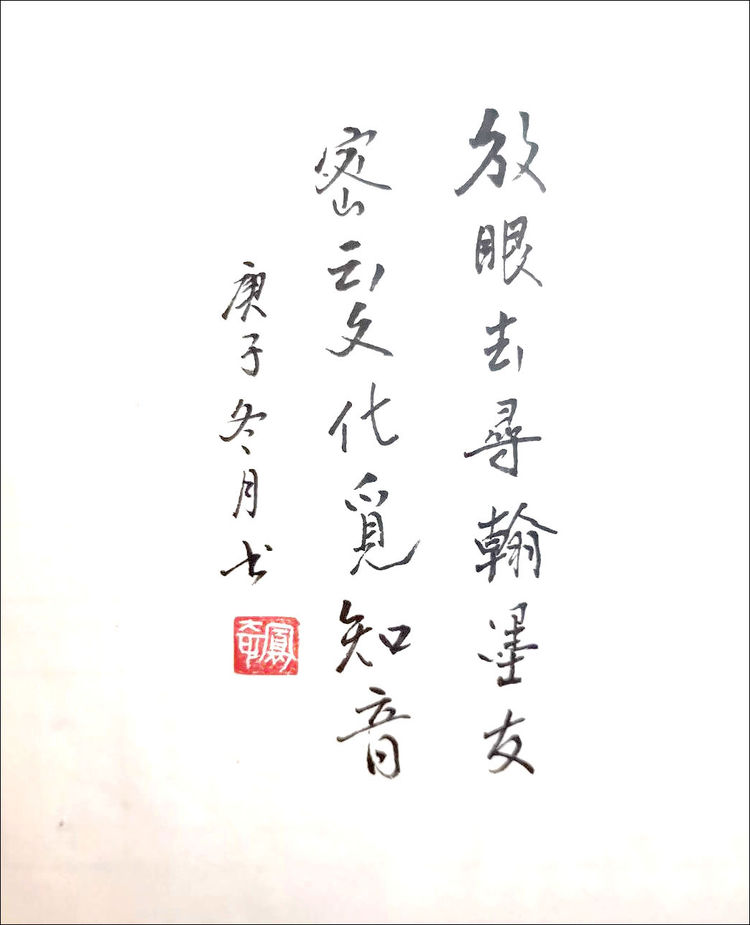 放眼去尋翰墨友
密云文化觅知音
庚子冬月书